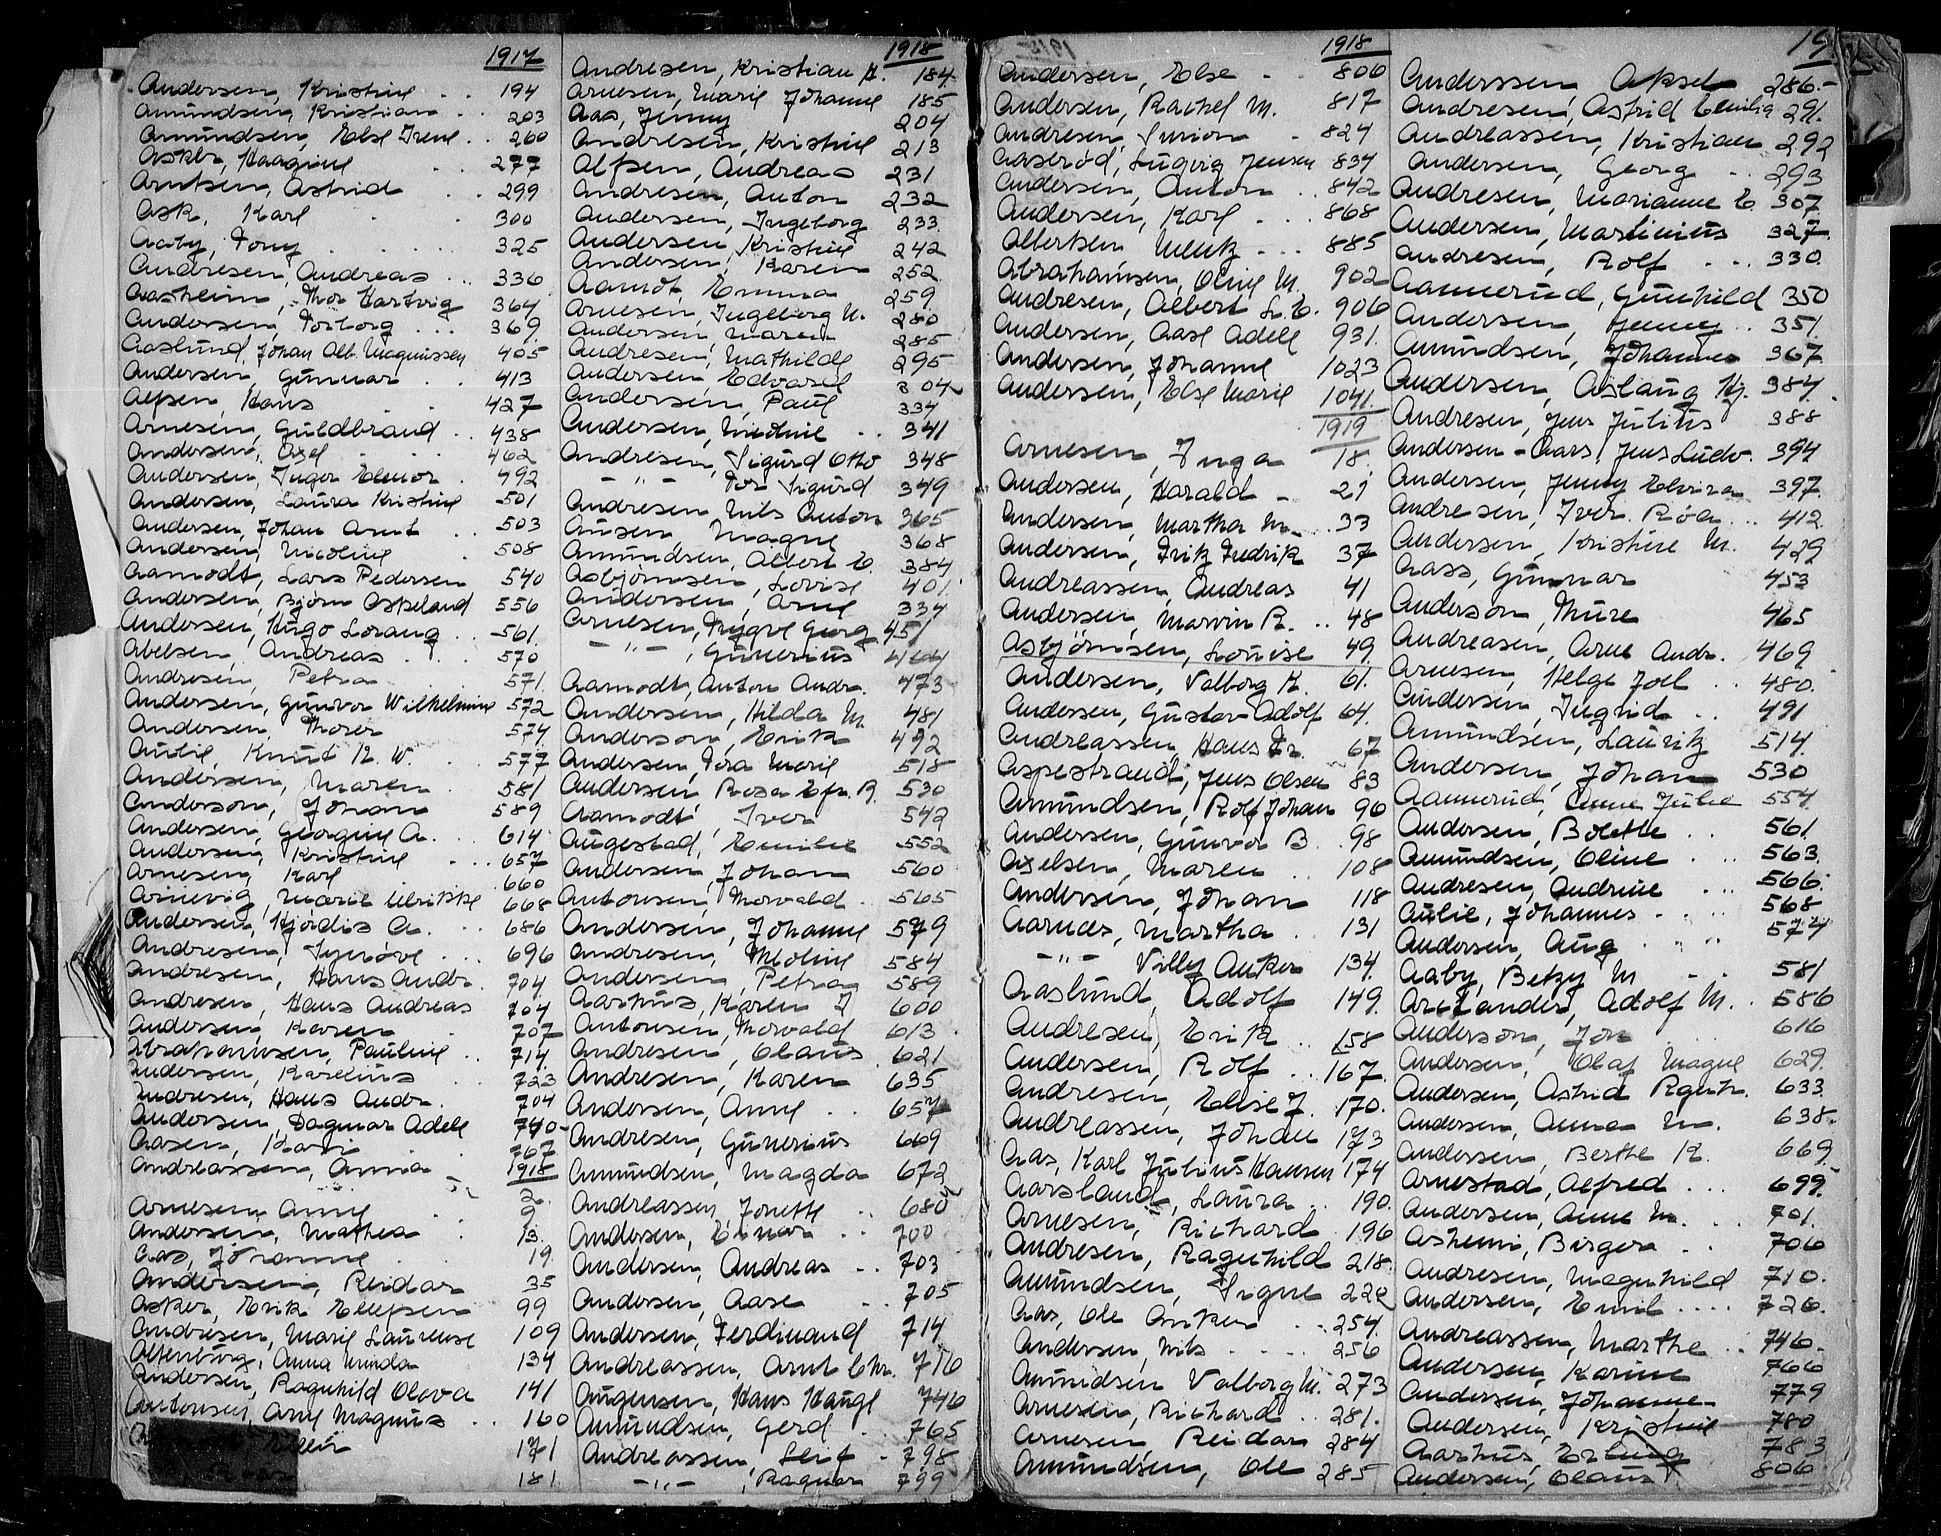 1917
Andersen, Kristine . . 194
Amundsen, Kristian . . 203
Amundsen, Else Irene . . 260
Asker, Haagine 277
Arntsen, Astrid . . 299
Ask, Karl . . 300
Aaby, Tony . . . . 325
Andresen, Andreas . . 336
Aasheim, Thor Hartvig 364
Andersen, Torborg . . . 369
Aaslund, Johan Alb. Magnussen 405
Andersen, Gunnar . . 413
Alfsen, Hans . . 427
Arnesen, Guldbrand . . 438
Andersen, Axel . . 462
Andersen, Inger Elenor . 492
Andersen, Laura Kristine 501
Andersen, Johan Arnt . . 503
Andersen, Nicoline . 508
Aamodt, Lars Pedersen 540
Andersen, Bjørn Aspelund 556
Andersen, Hugo Lorang . . 561
Abelsen, Andreas . . . 570
Andresen, Petra 571
Andersen, Gunvor Wilhelmine 572
Andersen, Thorer 574
Aulie, Knut R. W. . 577
Andersen, Maren . 581
Anderson, Johan 589
Andersen, Georgine A. . . 614
Andersen, Kristine . . . 657
Arnesen, Karl 660
Arnevig, Marie Ulrikke 668
Andersen, Hjørdis A. . 686
Andresen, Synnøve . . . 696
Andresen, Hans Andr. . 704
Andresen, Hans Andreas 704
Andersen, Karen 707
Abrahamsen, Pauline . . 714
Andersen, Karelius 723
Andresen, Hans Andr. 704
Andersen, Dagmar Adele 740
Aasen, Kari 767
Andreassen, Anna 1918
2
Arnesen, Anne . 9
Andersen, Mathea . 13
Aas, Johanne . 19
Andersen, Reidar 35
Asker, Erik Ellefsen 99
Andresen, Marie Laurense 109
Altenburg, Anna Minda 134
Andersen, Ragnhild Olava 141
Antonsen, Arne Magnus . . 160
171
181
1918
Andresen, Kristian A. 184
Arnesen, Marie Johanne 185
Aas, Jenny 204
Andresen, Kristine 213
Alfsen, Andreas 231
Andresen, Anton 232
Andersen, Ingeborg 233
Andersen, Kristine 242
Andersen, Karen 252
Aamot, Emma 259
Arnesen, Ingeborg M. 280
Andersen, Maren 285
Andresen, Mathilde 295
Andersen, Edvard 304
Andersen, Paul 334
Andersen, Nicoline . . 341
Andresen, Sigurd Otto 348
- " - Tor Sigurd 349
Andresen, Nils Anton 365
Ausen, Magne 368
Amundsen, Albert E. 384
Asbjørnsen, Lovise 401
Andersen, Arne 334
Arnesen, Trygve Georg 451
- " - , Gunerius 464
Aamodt, Anton Andr. 473
Andersen, Hilda M 481
Anderson, Erik 492
Andersen, Tora Marie 518
Andersen, Rosa Efr. R. 530
Aamodt, Iver 542
Augestad, Emilie 552
Andersen, Johan 560
Antonsen, Thorvald . 565
Andersen, Johanne 579
Andresen, Nicoline 584
Andersen, Petra 589
Aarhus, Karen J 600
Antonsen, Thorvald 613
Andresen, Olaus 621
Andresen, Karen 635
Andersen, Anne . . 657
Andresen, Gunerius 669
Amundsen, Magda 672
Andreassen, Jonette . . 680
Andersen, Einar . . 700
Andersen, Andreas . . 703
Andersen, Aase . . 705
Andersen, Ferdinand 714
Andreassen, Arnt Chr. 716
Augensen, Hans Hauge 746
Amundsen, Gerd . 765
Andreassen, Leif . 798
- " - , Ragnar 799
1918
Andersen, Else . . 806
Andersen, Rachel M. 817
Andresen, Simon . 824
Aaserød, Ludvig Jensen 834
Andersen, Anton . . 842
Andersen, Karl . . . 868
Albertsen Mentz . . . 885
Abrahamsen, Oline M. 902
Andresen, Albert L. E. 906
Andersen, Aase Adele 931
Andersen, Johanne 1023
Andersen, Else Marie 1041
1919
Arnesen, Inga 18
Andersen, Harald . 21
Andersen, Martha M. . . 33
Andersen, Fritz Fredrik 37
Andreassen, Andreas 41
Andersen, Marvin R. . . 48
Asbjørnsen, Louise 49
Andersen, Valborg K. 61
Andersen, Gustav Adolf 64
Andreassen, Hans Fr. 67
Aspestrand, Jens Olsen 83
Amundsen, Rolf Johan 96
Andersen, Gunvor B . . 98
Axelsen, Maren . . 108
Andersen, Johan 118
Aarnes, Martha . . 131
- " - Villy Anker 134
Aaslund, Adolf 149
Andresen, Erik . . 158
Andersen, Rolf . . 167
Andresen, Else J. 170
Andreassen, Johan 173
Aas, Karl Julius Hansen 174
Aarsland, Laura . . 190
Arnesen, Richard 196
Andresen, Ragnhild 218
Amundsen, Signe 222
Aas, Ole Anker . . 254
Andersen, Nils . . . . 256
Amundsen Valborg M. 273
Arnesen, Richard . . 281
Arnesen, Reidar 284
Amundsen, Ole 285
19
Anderssen, Aksel 286
Andresen, Astrid Emilia 291
Andreassen, Kristian 292
Andersen, Georg . . 293
Andresen, Marianne E 307
Andersen, Martinius 327
Andresen, Rolf . . . 330
Aannerud, Gunhild 350
Andersen, Jenny . . 351
Amundsen, Johannes 367
Andersen, Aslaug Hj. 384
Andresen, Jens Julius 388
Andersen - Aars, Jens Ludv. 394
Andersen, Jenny Elvira 397
Andresen, Iver Roa . . . 412
Andersen, Kristine M. 429
Aass, Gunnar 453
Anderson, Thure 465
Andreasen, Arne Andr. 469
Arnesen, Helge Joel . . 480
Andersen, Ingrid . . 491
Amundsen, Lauritz 514
Andersen, Johan 530
Aannerud, Anne Julie 554
Andersen, Bolette . . 561
Amundsen, Oline . . 563
Andresen, Andrine . . . 566
Aulie, Johannes . . . . 568
Andersen, Aug . . . 574
Aaby, Betzy M . . 581
Arctander, Adolf M. . 586
Anderson, Jon 616
Andersen, Olaf Magne 629
Andersen, Astrid Ragnh. 633
Andersen, Anna M. 638
Andersen, Berthe K. 669
Arnestad, Alfred . . . 699
Andersen, Anne M. . . 701
Asheim, Birger . . 706
Andresen, Magnhild 710
Andersen, Emil . . . . 726
Andreassen, Marthe . . 746
Andersen, Karine 766
Andersen, Johanne 779
Andersen, Kristine 780
Aarhus, Erling 783
Andersen, Olaus 806